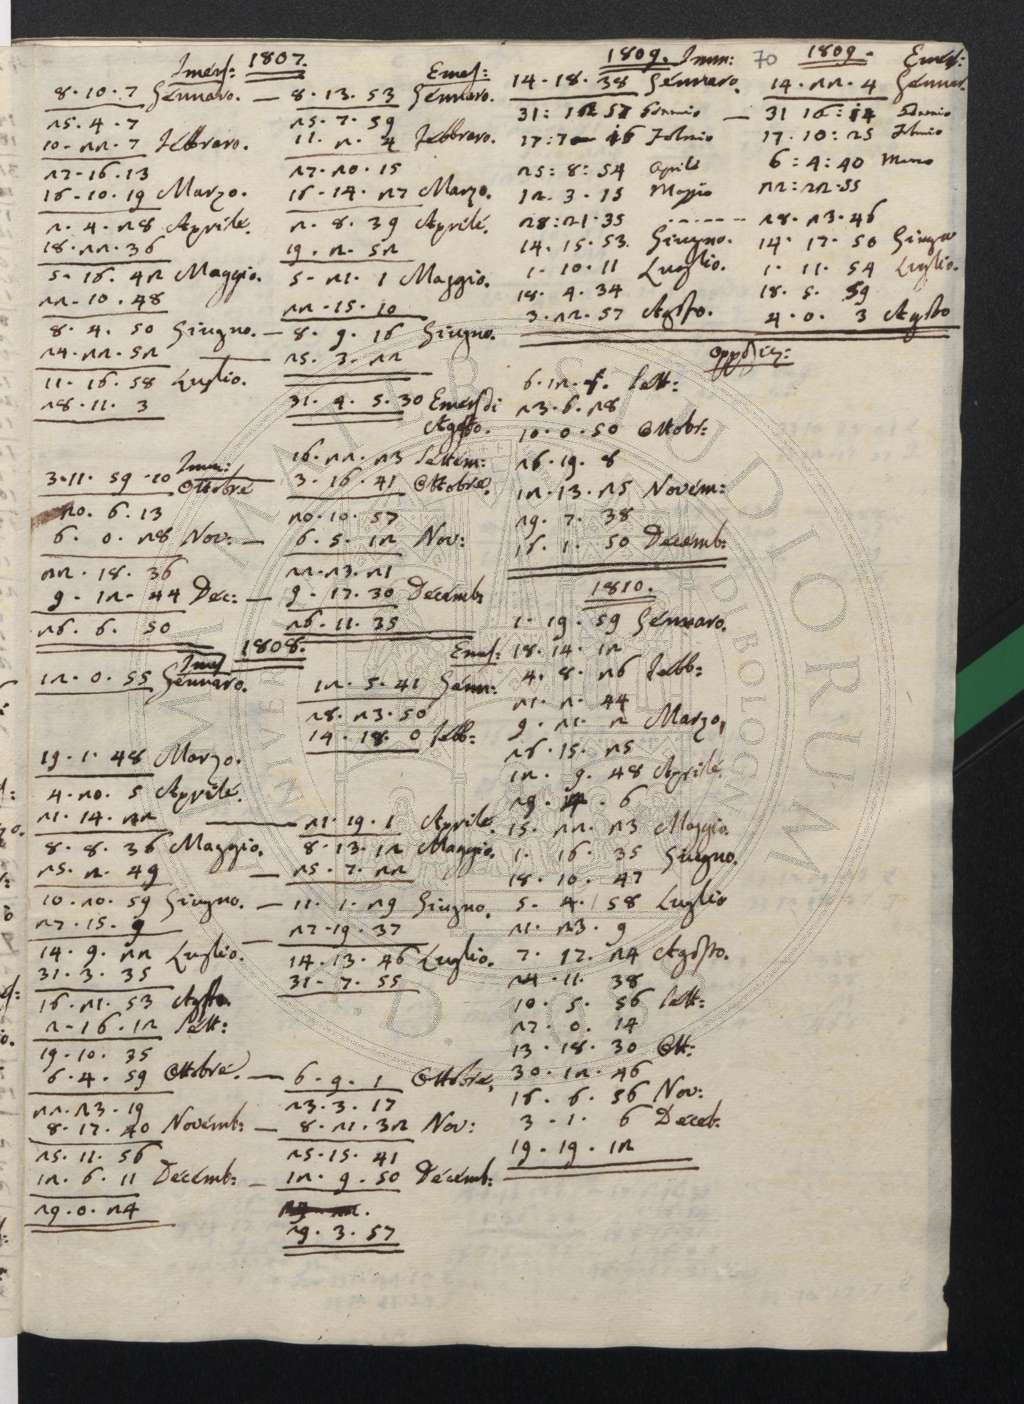 1807.
Imers:
8.10.7 Gennaro. —
25.4.7
10.22.7 Febbraro.
27.16.13
16.10.19 Marzo.
2.4.28 Aprile.
18.22.36
5.16.42 Maggio.
22.10.48
8.4.50 Giugno. —
24.22.52
11.16.58 Luglio.
28.11.3
Imm:
3.11.59.20 Ottobre
20.6.13
6.0.28 Nov: —
22.18.36
9.12.44 Dec: —
26.6.50
Emers:
8.13.53 Gennaro.
25.7.59
11.2.4 Febbraro.
27.20.15
16.14.27 Marzo.
2.8.39 Aprile.
19.2.52
5.21.1 Maggio.
22.15.10
8.9.16 Giugno.
25.3.22
31.4.5.30 Emers di
Agosto.
16.22.23 Settem:
3.16.41 Ottobre.
20.10.57
6.5.12 Nov:
22.23.21
9.17.30 Decemb:
26.11.35
1808.
Imers
12.0.55 Gennaro.
19.1.48 Marzo.
4.20.5 Aprile.
21.14.22 —
8.8.36 Maggio.
25.2.49 —
10.20.59 Giugno. —
27.15.9 —
14.9.22 Luglio.
31.3.35
16.21.53 Agosto.
2.16.12 Sett:
19.10.35
6.4.59 Ottobre. —
22.23.19
8.17.40 Novemb: —
25.11.56
12.6.11 Decemb: —
29.0.24
Emers:
12.5.41 Genn:
28.23.50
14.18.0 Febb:
21.19.1 Aprile.
8.13.12 Maggio.
25.7.22
11.1.29 Giugno.
27.19.37
14.13.46 Luglio.
31.7.55
6.9.1 Ottobre.
23.3.17
8.21.32 Nov:
25.15.41
12.9.50 Decemb:
29.3.57
1809. Imm:
14.18.38 Gennaro.
31:12 57 Gennaio —
17:7 46 Febraio
25:8:54 Aprile
12.3.15 Maggio
28:21.35 ------
14.15.53. Giugno.
1.10.11 Luglio.
18.4.34
3.22.57 Agosto.
70
1809. Emers:
14.22.4 Gennar.
31 16:14 Gennaio
17.10:25 Febraio
6:4:40 Marzo
22:22.55
28.23.46
14.17.50 Giugno
1.11.54 Luglio.
18.5.59
4.0.3 Agosto
6.12. Sett:
23.6.28
10.0.50 Ottobr:
26.19.8
12.13.25 Novem:
29.7.38
16.1.50 Decemb:
1810.
1.19.59 Gennaro.
18.14.12
4.8.26 Febb:
21.2.44
9.21.2 Marzo.
26.15.25
12.9.48 Aprile.
29. .6
15.22.23 Maggio.
1.16.35 Giugno.
18.10.47
5.4.58 Luglio
21.23.9
7.17.24 Agosto.
24.11.38
10.5.56 Sett:
27.0.14
13.18.30 Ott:
30.12.46
16.6.56 Nov:
3.1.6 Deceb.
19.19.12